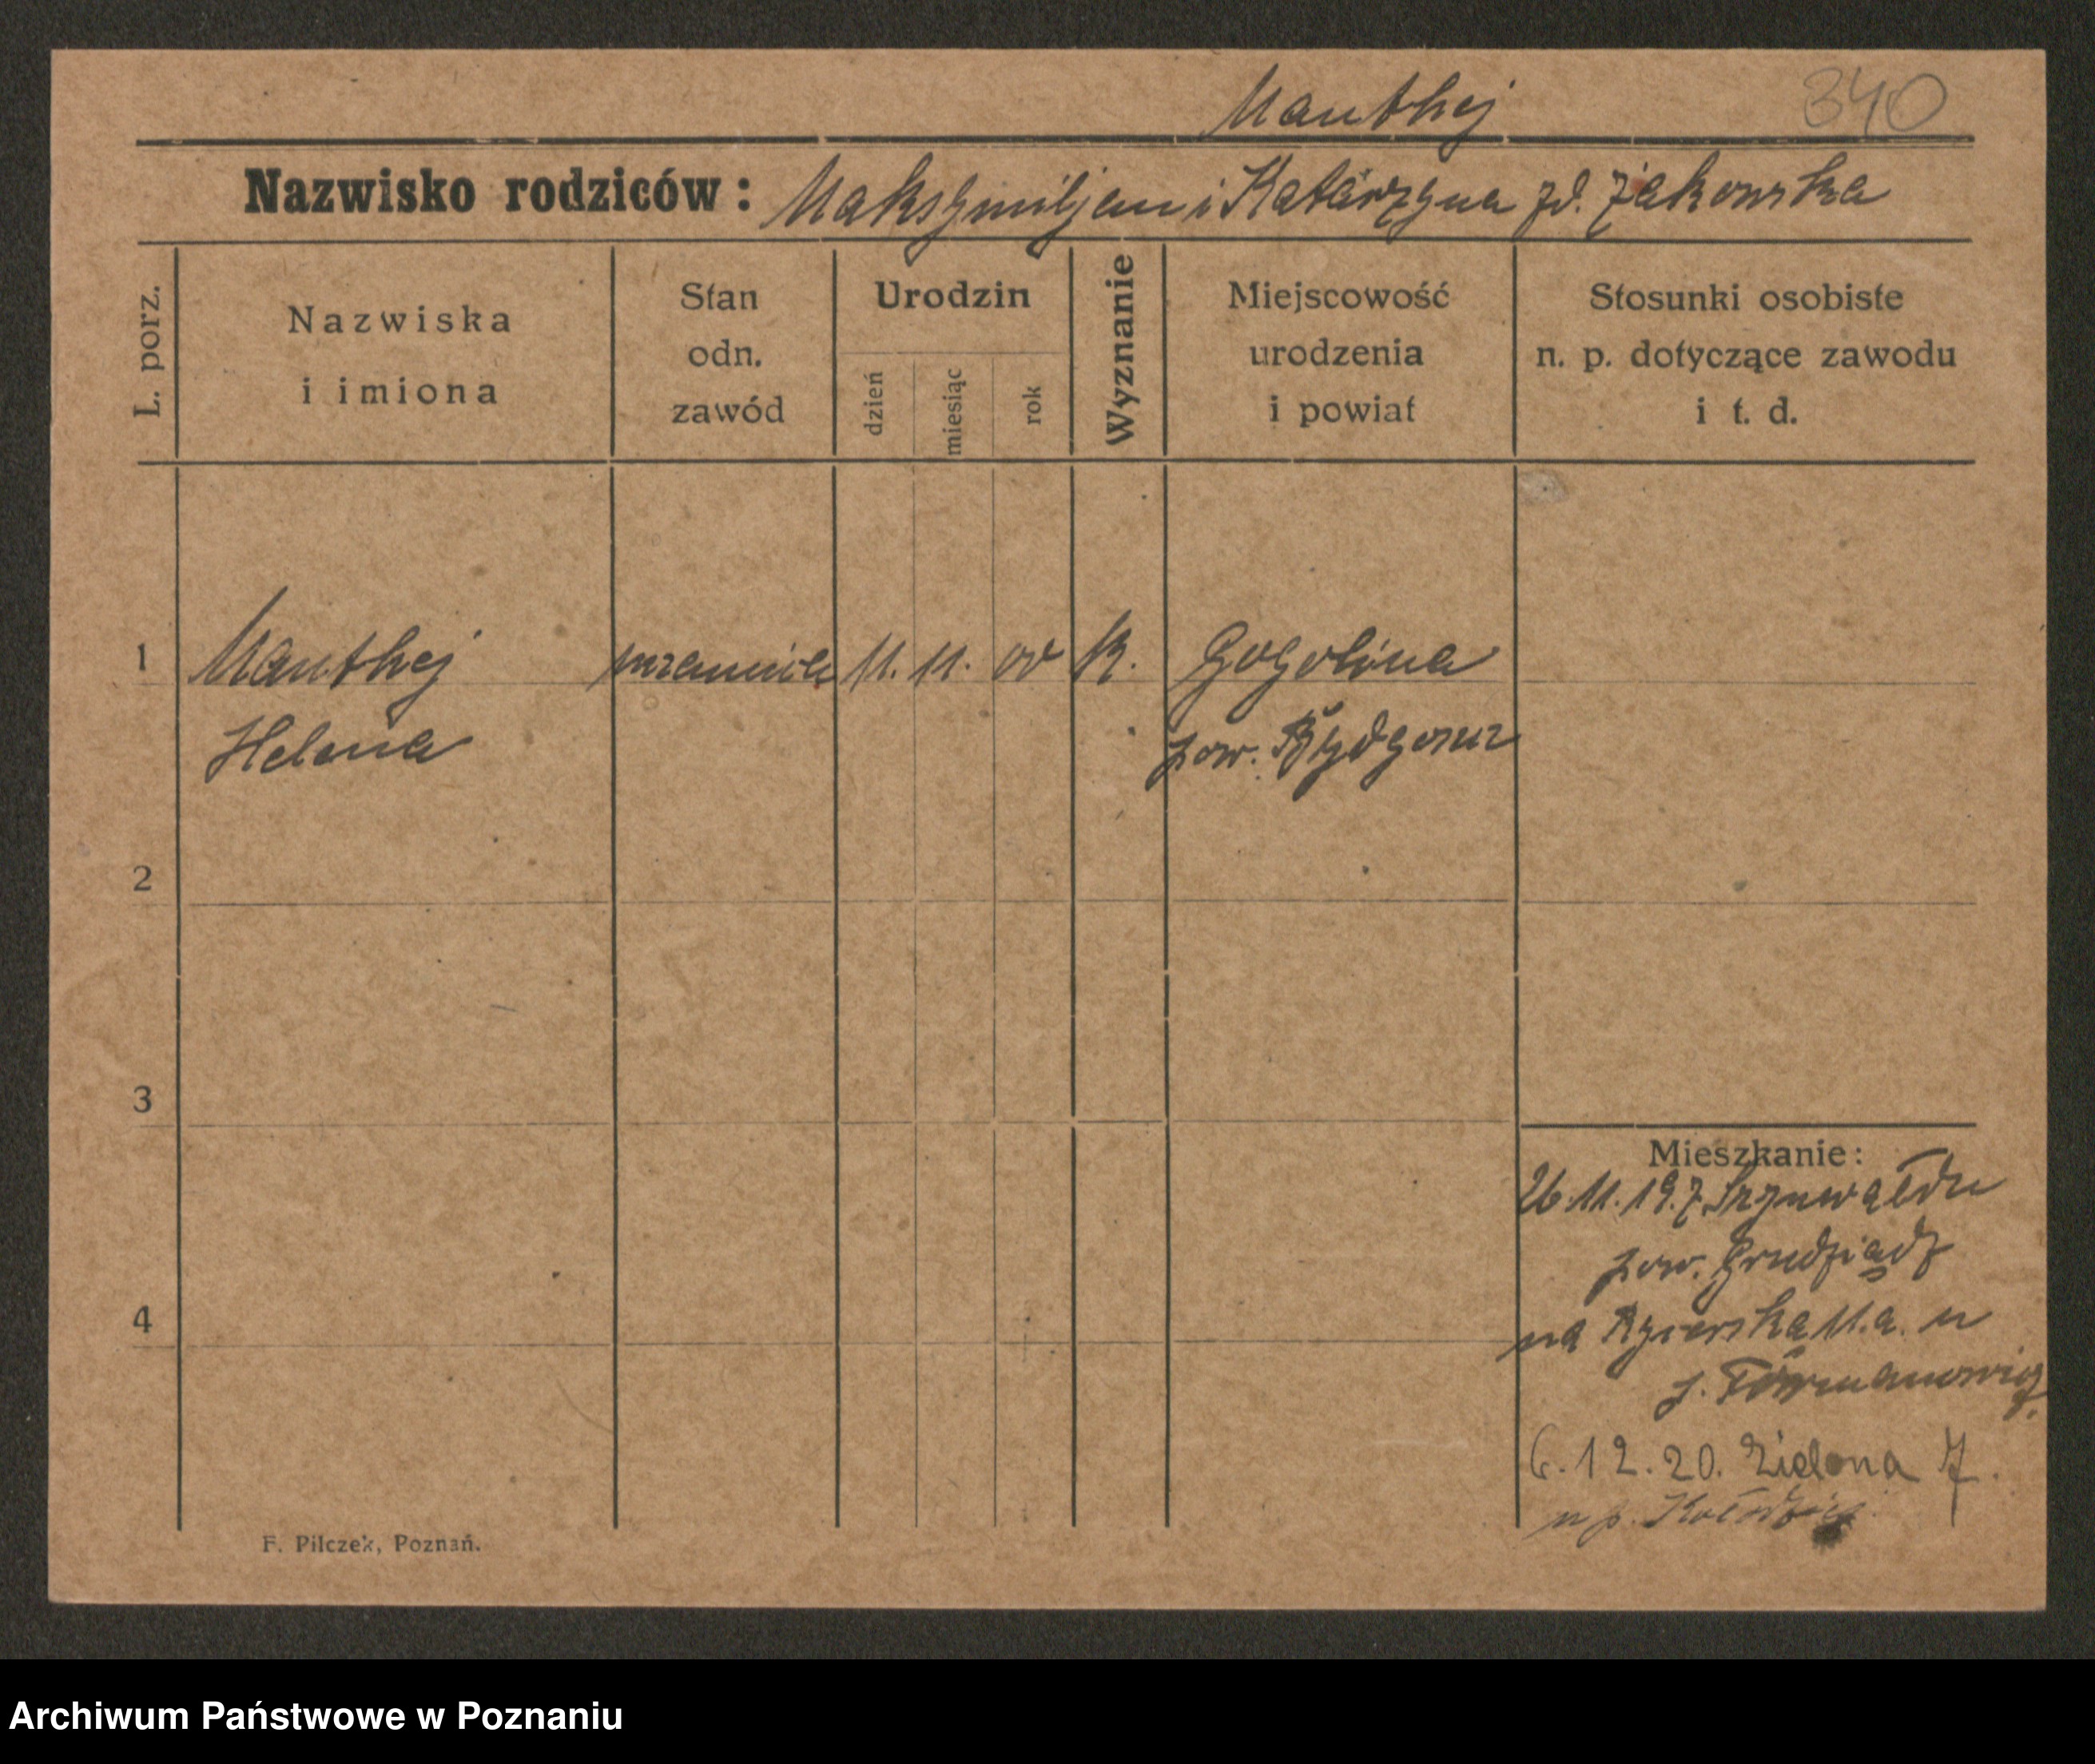 Manthej
340
Nazwisko rodziców: Maksymiljan i Katarzyna zd. Żakowska
L. porz.
Nazwiska
i imiona
Stan
odn.
zawód
Urodzin
dzień
miesiąc
rok
Wyznanie
Miejscowość
urodzenia
i powiat
Stosunki osobiste
n. p. dotyczące zawodu
i t. d.
1
Manthej
11. 11. 00 K.
Gogolina
Helena
pow. Bydgoszcz
2
3
4
Mieszkanie:
26.11.19. z
pow. Grudziądz
na 11.a. u
p.
6.12.20. Zielona 7.
u p.
F. Pilczek, Poznań.
Archiwum Państwowe w Poznaniu